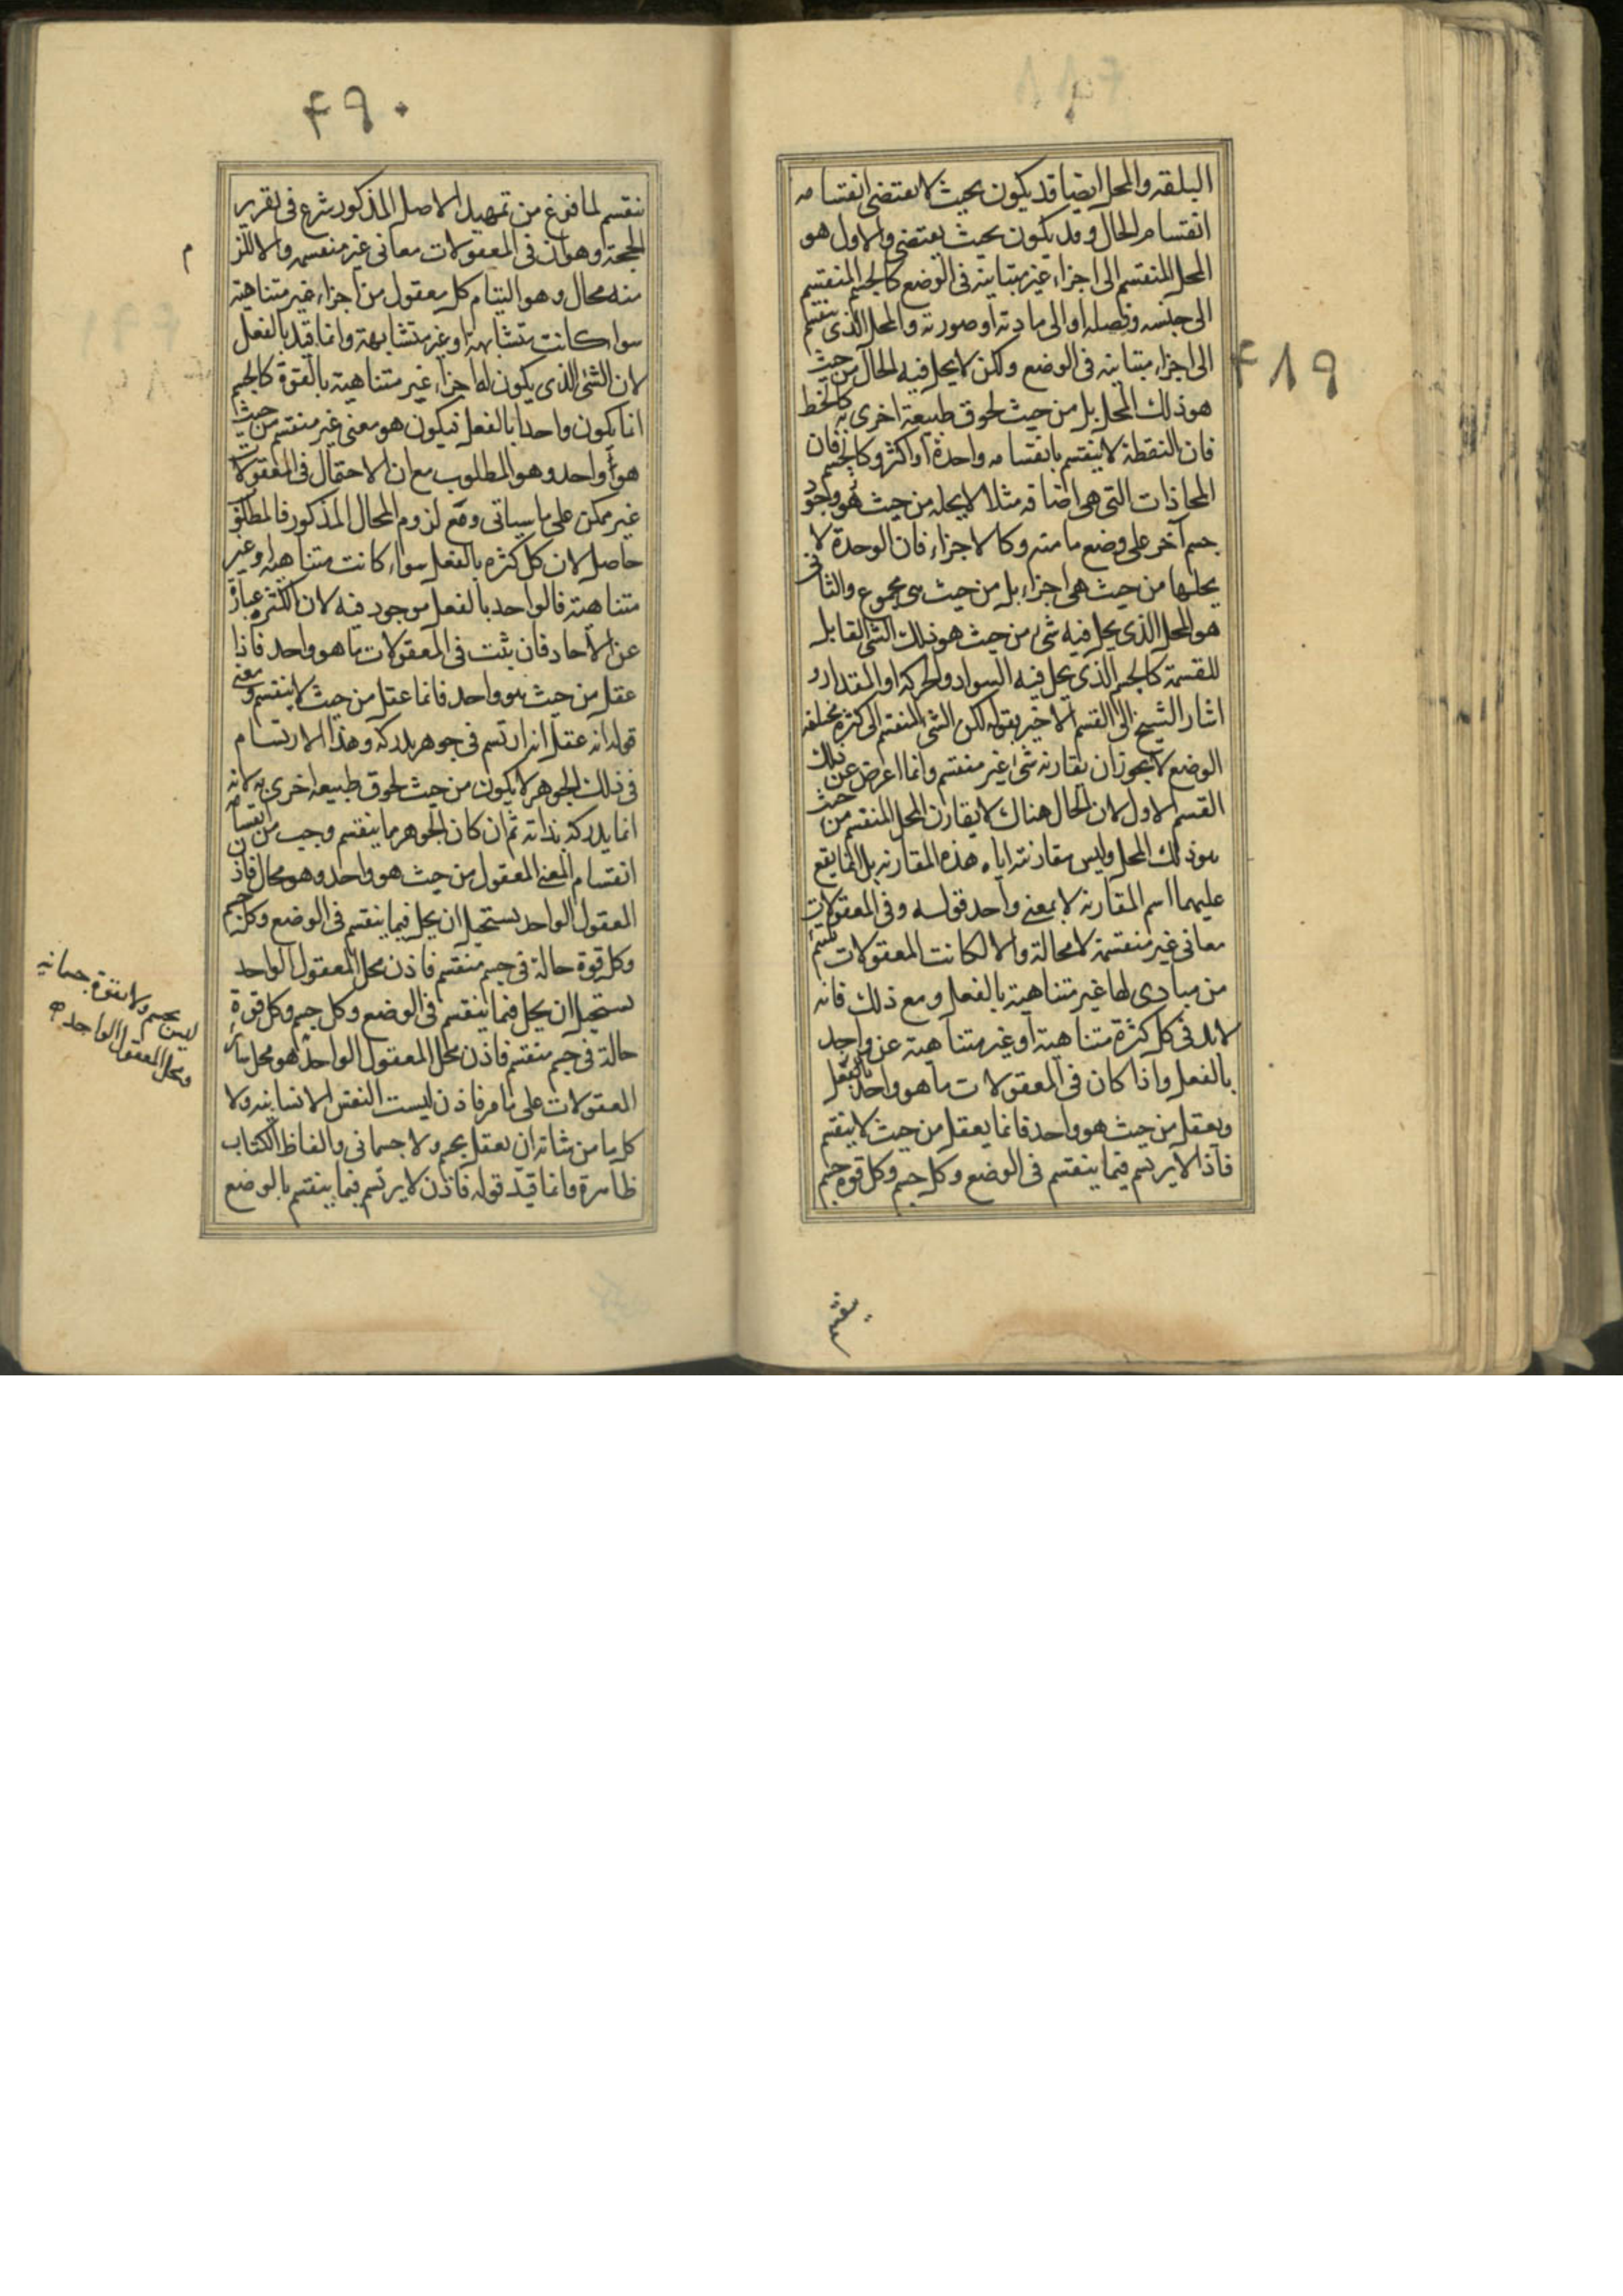 ۴۸۹
البلقه والمحل ايضا قد يكون بحيث لا يقتضى انقسامه
انقسام الحال وقد يكون بحيث يقتضى والاول هو
المحل المنقسم الى اجزاء غير متباينة فى الوضع كالجسم المنقسم
الى جنسه وفصله او الى مادته وصورته والمحل الذى ينقسم
الى اجزاء متباينه فى الوضع ولكن لا يحل فيه الحال من حيث
هو ذلك المحل بل من حيث لحوق طبيعة اخرى به كالخط
فان النقطة لا ينقسم بانقسامه واحدة او اكثر وكالجسم فان
المحاذات التى هى اضافه مثلا لا يحله من حيث هو وجود
جسم آخر على وضع ما منه وكالاجزاء فان الوحدة لا
يحلها من حيث هى اجزاء بل من حيث هى مجموع والثانى
هو المحل الذى يحل فيه شىء من حيث هو ذلك الشى القابل
للقسمة كالجسم الذى يحل فيه السواد والحركة او المقدار و
اشار الشيخ الى القسم الاخير بقوله لكن الشى المنقسم الى كثرة مختلفه
الوضع لا يجوز ان يقارنه شىء غير منقسم وانما اعرض عن ذلك
القسم الاول لان الحال هناك لا يقارن المحل المنقسم من حيث
هو ذلك المحل وليس مقارنته اياه هذه المقارنه بل انما يقع
عليهما اسم المقارنه لا بمعنى واحد قوله وفى المعقولات
معانى غير منقسمة لا محالة والا لكانت المعقولات تلتئم
من مبادى لها غير متناهية بالفعل ومع ذلك فانه
لابد فى كل كثرة متناهية او غير متناهية عن واحد
بالفعل واذا كان فى المعقولات ما هو واحد بالفعل
ويعقل من حيث هو واحد فانما يعقل من حيث لا ينقسم
فاذا لا يرتسم فيما ينقسم فى الوضع وكل جسم وكل قوه جسم
۴۹۰
ينقسم لما فرغ من تمهيد الاصل المذكور شرع فى تقرير
الحجة وهو ان فى المعقولات معانى غير منقسمه والا لزم
منه محال وهو التيام كل معقول من اجزاء غير متناهية
سواء كانت متشابهة او غير متشابهة وانما قيد بالفعل
لان الشى الذى يكون له اجزاء غير متناهية بالقوة كالجسم
انما يكون واحدا بالفعل فيكون هو معنى غير منقسم من حيث
هو واحد وهو المطلوب مع ان الاحتمال فى المعقولات
غير ممكن على ما سياتى ومع لزوم المحال المذكور فالمطلوب
حاصل لان كل كثره بالفعل سواء كانت متناهيه او غير
متناهية فالواحد بالفعل موجود فيه لان الكثره عبارة
عن الآحاد فان ثبت فى المعقولات ما هو واحد فاذا
عقل من حيث هو واحد فانما عقل من حيث لا ينقسم ومعنى
قوله انه عقل انه ارتسم فى جوهر يدركه وهذا الارتسام
فى ذلك الجوهر لا يكون من حيث لحوق طبيعه اخرى به لانه
انما يدركه بذاته ثم ان كان الجوهر ما ينقسم وجب من انقسامه
انقسام المعنى المعقول من حيث هو واحد وهو محال فاذن
المعقول الواحد يستحيل ان يحل فيما ينقسم فى الوضع وكل جسم
وكل قوة حالة فى جسم منقسم فاذن محل المعقول الواحد
يستحيل ان يحل فيما ينقسم فى الوضع وكل جسم وكل قوة
حالة فى جسم منقسم فاذن محل المعقول الواحد هو محل سائر
المعقولات على ما مر فاذن ليست النفس الانسانيه ولا
كل ما من شانه ان يعقل بجسم ولا جسمانى والفاظ الكتاب
ظاهرة وانما قيد قوله فاذن لا يرتسم فيما ينقسم بالوضع
ليس بجسم ولا بقوة جسمانيه
ومحل المعقول الواحد